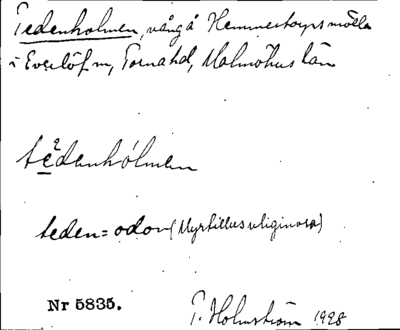 Tedenholmen, vång å Hemmestorps mölla
i Everlöf sn, Torna hd, Malmöhus län
tèdenhólmen
teden = odon (Myrtillus uliginosa)
Nr 5835.
T. Holmström 1928